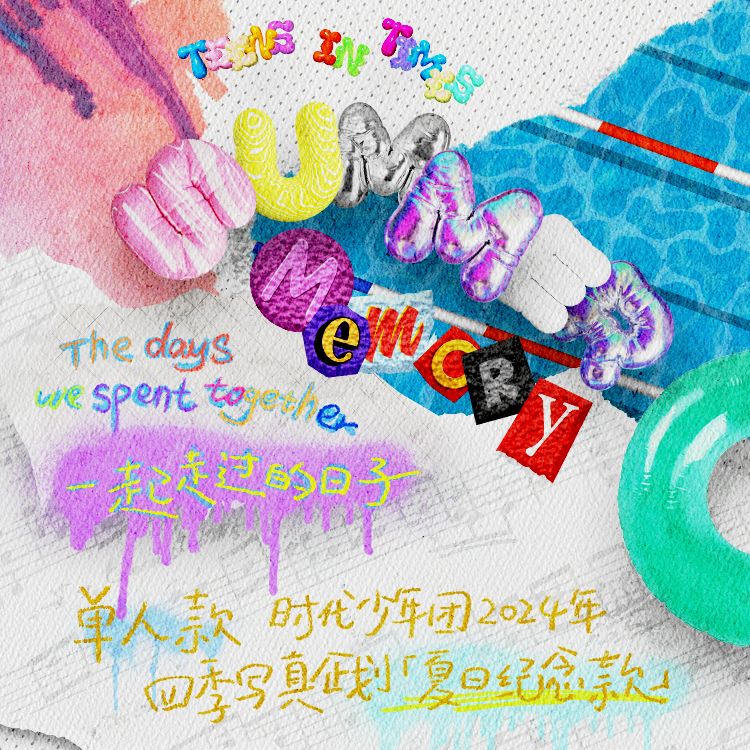 TEENS IN TIMES
SUMMER
Memory
The days
we spent together
一起走过的日子
单人款 时代少年团2024年
四季写真企划「夏日纪念款」